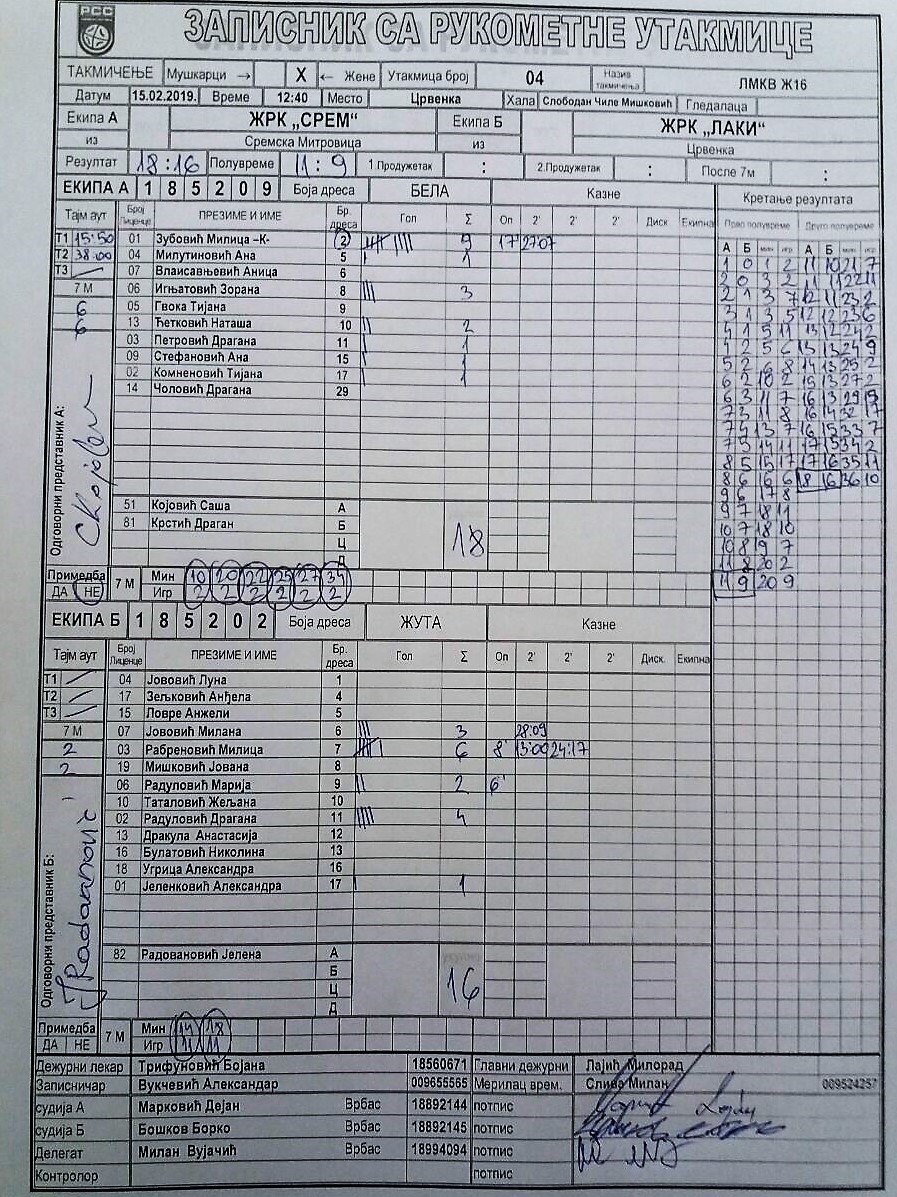 РСС
ЗАПИСНИК СА РУКОМЕТНЕ УТАКМИЦЕ
ТАКМИЧЕЊЕ Мушкарци → X ← Жене Утакмица број 04 Назив такмичења ЛМКВ Ж16
Датум 15.02.2019. Време 12:40 Место Црвенка Хала Слободан Чиле Мишковић Гледалаца
Екипа А ЖРК „СРЕМ” Екипа Б ЖРК „ЛАКИ”
из Сремска Митровица из Црвенка
Резултат 18:16 Полувреме 11:9 1.Продужетак : 2.Продужетак : После 7м :
ЕКИПА А 1 8 5 2 0 9 Боја дреса БЕЛА Казне Кретање резултата
Тајм аут Број Лиценце ПРЕЗИМЕ И ИМЕ Бр. дреса Гол Σ Оп 2' 2' 2' Диск. Екипна Прво полувреме Друго полувреме
А Б мин игр А Б мин игр
T1 15:50 01 Зубовић Милица -К- 2 9 17' 27:07
T2 38:00 04 Милутиновић Ана 5 1
T3 07 Влаисављевић Аница 6
7 М 06 Игњатовић Зорана 8 3
6 05 Гвока Тијана 9
6 13 Ћетковић Наташа 10 2
03 Петровић Драгана 11 1
09 Стефановић Ана 15 1
02 Комненовић Тијана 17 1
14 Чоловић Драгана 29
1 0 1 2 11 10 21 7
2 0 3 2 11 11 22 11
2 1 3 7 12 11 23 2
3 1 3 5 12 12 23 6
4 1 5 11 13 12 24 2
4 2 5 6 13 13 24 9
5 2 6 8 14 13 25 2
6 2 10 2 15 13 27 2
6 3 11 7 16 13 29 15
7 3 11 8 16 14 32 17
7 4 13 7 16 15 33 7
7 5 14 11 17 15 34 2
8 5 15 17 17 16 35 11
8 6 16 6 18 16 36 10
9 6 17 8
9 7 18 11
10 7 18 10
10 8 19 7
11 8 20 2
11 9 20 9
Одговорни представник А:
51 Којовић Саша А
81 Крстић Драган Б
Ц
Д
18
Примедба 7 М Мин 10 20 22 25 27 34
ДА НЕ Игр 2 2 2 2 2 2
ЕКИПА Б 1 8 5 2 0 2 Боја дреса ЖУТА Казне
Тајм аут Број Лиценце ПРЕЗИМЕ И ИМЕ Бр. дреса Гол Σ Оп 2' 2' 2' Диск. Екипна
T1 04 Јововић Луна 1
T2 17 Зељковић Анђела 4
T3 15 Ловре Анжели 5
7 М 07 Јововић Милана 6 3 28:09
2 03 Рабреновић Милица 7 6 8' 13:00 24:17
2 19 Мишковић Јована 8
06 Радуловић Марија 9 2 6'
10 Таталовић Жељана 10
02 Радуловић Драгана 11 4
13 Дракула Анастасија 12
16 Булатовић Николина 13
18 Угрица Александра 16
01 Јеленковић Александра 17 1
Одговорни представник Б:
82 Радовановић Јелена А
Б
Ц
Д
16
Примедба 7 М Мин 14 18
ДА НЕ Игр 11 11
Дежурни лекар Трифуновић Бојана 18560671 Главни дежурни Лајић Милорад
Записничар Вукчевић Александар 009655565 Мерилац врем. Слива Милан 009524257
судија А Марковић Дејан Врбас 18892144 потпис
судија Б Бошков Борко Врбас 18892145 потпис
Делегат Милан Вујачић Врбас 18994094 потпис
Контролор потпис